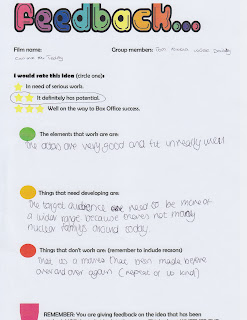 Feedback...
Film name:
Group members: Tom
I would rate this idea (circle one):
In need of serious work.
It definitely has potential.
Well on the way to Box Office success.
The elements that work are are:
The ideas are very good and fit in really well
Things that need developing are:
The target audience need to be more of
a wider range because theres not many
nuclear families around today.
Things that don't work are: (remember to include reasons)
That its a movies that been made before
over and over again (repeat of its kind)
REMEMBER: You are giving feedback on the idea that has been